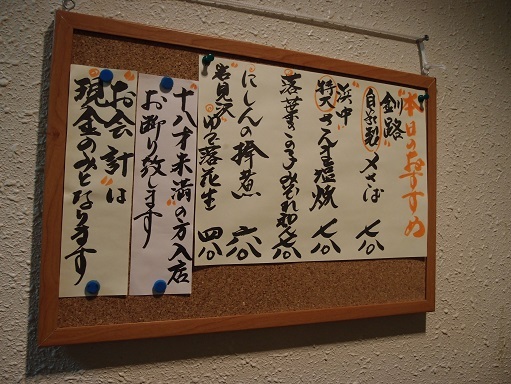 本日のおすすめ
釧路 自家製 〆さば 七八〇
浜中 特大 さんま塩焼 七八〇
落葉きのこみぞれ和え 七八〇
にしんの棒煮 六八〇
岩見沢 ゆで落花生 四八〇
十八才未満の方入店
お断り致します
お会計は
現金のみとなります